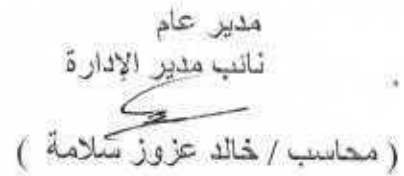 مدير عام
نائب مدير الإدارة
( محاسب / خالد عزوز سلامة )